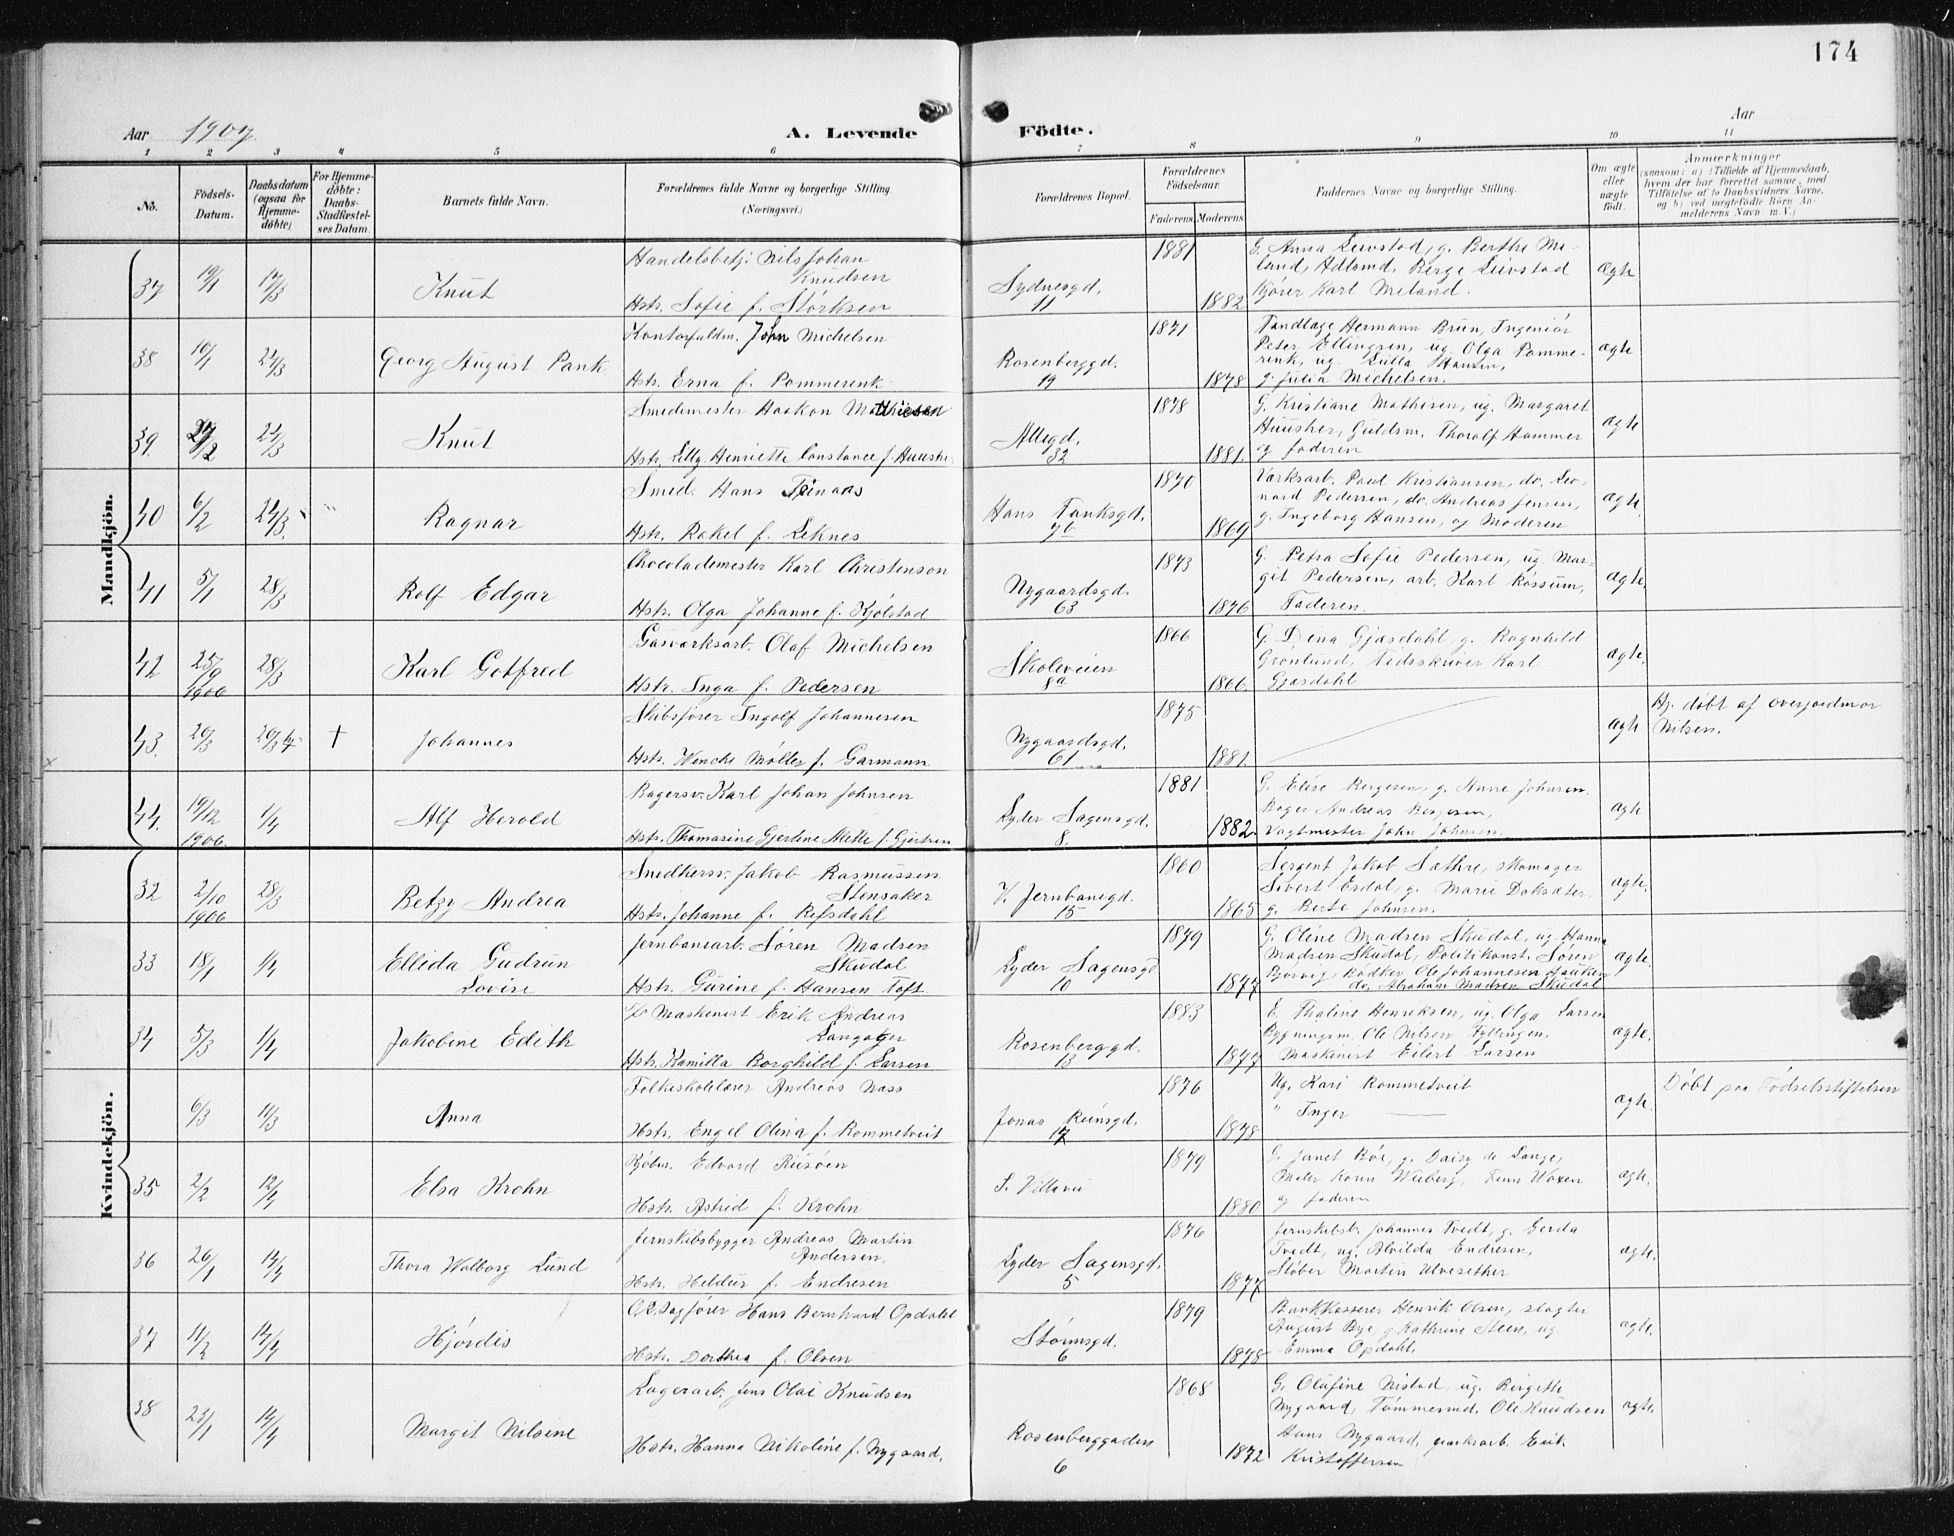 174
Aar 1907 A. Levende Födte. Aar
1 2 3 4 5 6 7 8 9 10 11
No.
Födsels-
Datum.
Daabsdatum
(ogsaa for
Hjemme-
döbte)
For Hjemme-
döbte:
Daabs-
Stadfæstel-
ses Datum.
Barnets fulde Navn.
Forældrenes fulde Navne og borgerlige Stilling.
(Næringsvei.)
Forældrenes Bopæl.
Forældrenes
Födselsaar.
Faderens Moderens
Faddernes Navne og borgerlige Stilling.
Om ægte
eller
uægte
født.
Anmærkninger
(saasom: a) i Tilfælde af Hjemmedaab,
hvem der har forrettet samme, med
Tilföielse af to Daabsvidners Navne.
og b) ved uægtefödte Börn An-
melderens Navn m. V.)
Mandkjön.
37 19/1 17/3 Knut
Handelsbetj. Nils Johan
Knudsen
Hstr. Sofie f. Størksen
Sydnesgd.
11
1881 1882
G. Anna Leivstad, g. Berthe Me-
land, Adlsmd. Berge Leivstad
Kjører Karl Meland.
ægte
38 10/1 24/3 Georg August Pank
Kontorfuldm. John Michelsen
Hstr. Erna f. Pommerenk
Rosenberggd.
19
1871 1878
Tandlæge Hermann Brun, Ingeniør
Peter Ellingsen, ug. Olga Pomme-
renk, ug. Lulla Hansen,
g. Julia Michelsen.
ægte
39. 24/3 Knut
Smedemester Haakon Mathiesen
Hstr. Lilly Henriette Constance f.
Allegd.
32
1878 1881.
G. Kristiane Mathisen, ug. Margaret
Guldsm. Thorolf Hammer
og faderen
ægte
40 6/2 24/3. Ragnar
Smed. Hans
Hstr. Rakel f. Leknes
Hans Tanksgd.
7b
1870 1869
Værksarb. Paul Kristiansen, do. Leo-
nard Pedersen, do. Andreas Jensen,
g. Ingeborg Hansen, og Moderen
ægte.
41 5/1 28/3 Rolf Edgar
Chocolademester Karl Christenson
Hstr. Olga Johanne f. Kjølstad
Nygaardsgd.
63
1873 1876
G. Petra Sofie Pedersen, ug. Mar-
git Pedersen, arb. Karl Røssum,
Faderen.
ægte.
42 25/9
1906
28/3 Karl Gotfred
Gasværksarb. Olaf Michelsen
Hstr. Inga f. Pedersen
Skoleveien
8a
1866 1866.
G. Dina Gjæsdahl, g. Ragnhild
Grønlund, Tidsskriver Karl
Gjæsdahl
ægte.
43. 20/3 + Johannes
Skibsfører Ingolf Johannesen
Hstr. Wenche Møller f. Garmann
Nygaardsgd.
61
1875 1881
ægte
Hj. døbt af overjordmor
Nilsen.
44. 19/12
1906.
1/4 Alf Herold
Bagersv. Karl Johan Johnsen
Hstr. Thomasine Gjertine Mette f. Gjertsen
Lyder Sagensgd.
8.
1881 1882
G. Elise Bergesen, g. Anne Johnsen.
Bager Andreas Bergesen,
Vagtmester John Johnsen.
ægte
Kvindekjön.
32 2/10
1906
28/3 Betzy Andrea
Smedhersv. Jakob Rasmussen
Stensaker
Hstr. Johanne f. Refsdahl
V. Jernbanegd.
15
1860 1865
Sergent Jakob Sæthre, skomager
Sivert Erdal, g. Marie Doksæter
g. Berte Johnsen.
ægte.
33 18/1 1/4 Ellida Gudrun
Lovise
Jernbanearb. Søren Madsen
Skudal
Hstr. Gurine f. Hansen Toft
Lyder Sagensgd
10
1879 1877
G. Oline Madsen Skudal, ug. Hanna
Madsen Skudal, Politikonst. Søren
Bjorvig, Bødker Ole Johannesen
do. Abraham Madsen Skudal
ægte.
34 5/3 1/4 Jakobine Edith
Maskinist Erik Andreas
Langager
Hstr. Kamilla Borghild f. Larsen
Rosenberggd.
13
1883 1877
E. Thaline Henriksen, ug. Olga Larsen
Bygningsm. Ole Nilsen Fyllingen,
Maskinist Eilert Larsen
ægte.
6/3 11/3 Anna
Folkeskolelærer Andreas Næss
Hstr. Engel Olina f. Rommetveit
Jonas Reinsgd.
17
1876 1878
Ug. Kari Rommetveit
" Inger
ægte.
Døbt paa Fødselsstiftelsen
35 2/2 12/4 Elsa Krohn
Kjøbm. Edvard Riisøen
Hstr. Astrid f. Krohn
S. Villavei
1879 1880
G. Janet Bøe, g. Daisy de Lange,
Maler Wiberg,
og faderen
ægte.
36 26/1 14/4 Thora Walborg Lund
Jernskibsbygger Andreas Martin
Andersen.
Hstr. Heldur f. Endresen
Lyder Sagensgd.
5
1876 1877
Jernskibsb. Johannes Tvedt, g. Gerda
Tvedt, ug. Alvilda Endresen,
Støber Martin Ulvesether
ægte.
37 11/2 14/4 Hjørdis
O.R. Sagfører Hans Bernhard Opdahl
Hstr. Dorthea f. Olsen
Stormsgd.
6
1879 1878
Bankkasserer Henrik Olsen, slagter
August Bye, g. Kathrine Steen, ug.
Emma Opdahl.
ægte.
38 23/1 14/4 Margit Nilsine
Lagerarb. Jens Olai Knudsen
Hstr. Hanna Nikoline f. Nygaard.
Rosenberggaden
6
1868 1872
G. Olufine Nistad, ug. Birgitte
Nygaard, Tømmermd. Ole Knudsen
Hans Nygaard, værksarb. Erik
Kristoffersen
ægte.